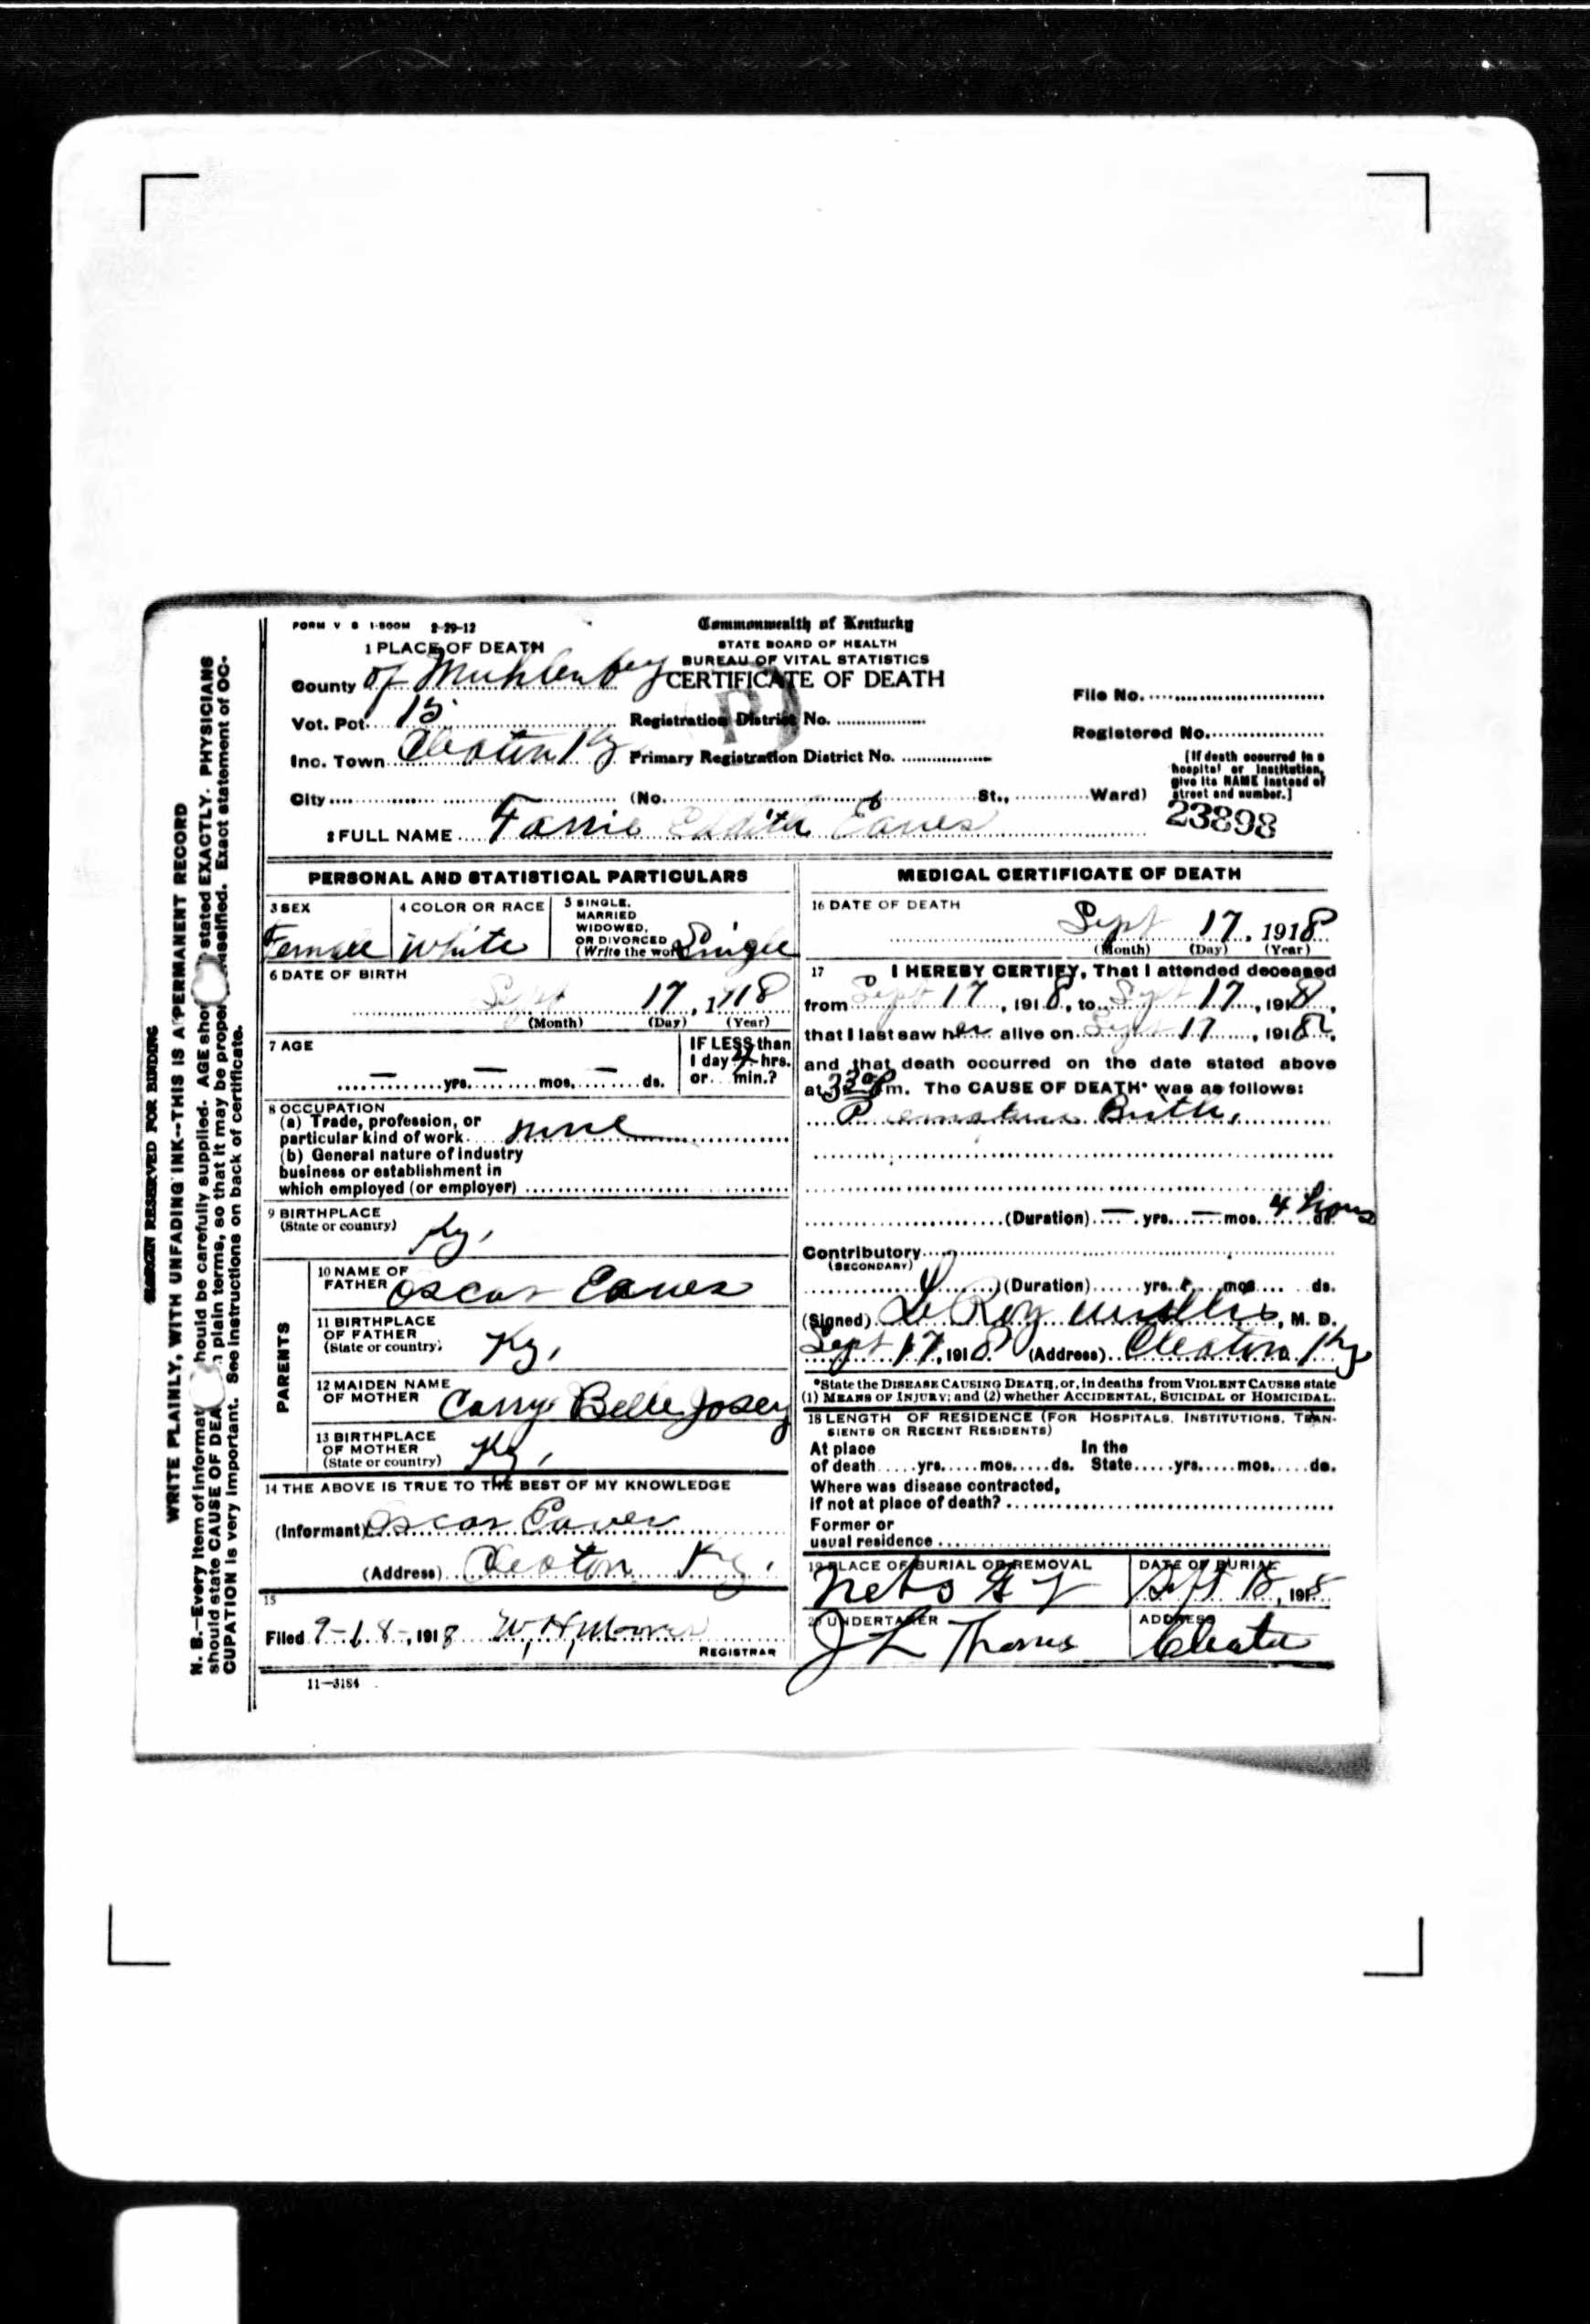 FORM V S 1-500M 2-29-12
Commonwealth of Kentucky
STATE BOARD OF HEALTH
BUREAU OF VITAL STATISTICS
CERTIFICATE OF DEATH
1 PLACE OF DEATH
County of Muhlenberg
Vot. Pct. 15
Inc. Town Cleaton Ky
City
Registration District No.
Primary Registration District No.
(No. St., Ward)
File No.
Registered No.
[If death occurred in a
hospital or institution,
give its NAME instead of
street and number.]
23898
2 FULL NAME Edith Eaves
PERSONAL AND STATISTICAL PARTICULARS
3 SEX
Female
4 COLOR OR RACE
White
5 SINGLE,
MARRIED
WIDOWED,
OR DIVORCED
(Write the word) Single
6 DATE OF BIRTH
Sept 17, 1918
(Month) (Day) (Year)
7 AGE
— yrs. — mos. — ds.
IF LESS than
1 day 4 hrs.
or min.?
8 OCCUPATION
(a) Trade, profession, or
particular kind of work none
(b) General nature of industry
business or establishment in
which employed (or employer)
9 BIRTHPLACE
(State or country) Ky,
PARENTS
10 NAME OF
FATHER Oscar Eaves
11 BIRTHPLACE
OF FATHER
(State or country) Ky,
12 MAIDEN NAME
OF MOTHER Carry Belle Josey
13 BIRTHPLACE
OF MOTHER
(State or country) Ky,
14 THE ABOVE IS TRUE TO THE BEST OF MY KNOWLEDGE
(Informant) Oscar Eaves
(Address) Cleaton Ky.
15
Filed 9-18-, 1918 W, H,
REGISTRAR
11—3184
MEDICAL CERTIFICATE OF DEATH
16 DATE OF DEATH
Sept 17, 1918
(Month) (Day) (Year)
17 I HEREBY CERTIFY, That I attended deceased
from Sept 17, 1918, to Sept 17, 1918,
that I last saw her alive on Sept 17, 1918,
and that death occurred on the date stated above
at 3 30 P m. The CAUSE OF DEATH* was as follows:
Premature Birth,
(Duration) — yrs. — mos. 4 hours ds.
Contributory
(SECONDARY)
(Duration) yrs. mos. ds.
(Signed) Le Roy , M. D.
Sept 17, 1918 (Address) Cleaton Ky
*State the DISEASE CAUSING DEATH, or, in deaths from VIOLENT CAUSES state
(1) MEANS OF INJURY; and (2) whether ACCIDENTAL, SUICIDAL or HOMICIDAL.
18 LENGTH OF RESIDENCE (FOR HOSPITALS, INSTITUTIONS, TRAN-
SIENTS OR RECENT RESIDENTS)
At place In the
of death yrs. mos. ds. State yrs. mos. ds.
Where was disease contracted,
if not at place of death?
Former or
usual residence
19 PLACE OF BURIAL OR REMOVAL
DATE OF BURIAL
Sept 18, 1918
20 UNDERTAKER
J L Thomas
ADDRESS
Cleaton
MARGIN RESERVED FOR BINDING
WRITE PLAINLY, WITH UNFADING INK--THIS IS A PERMANENT RECORD
N. B.—Every item of informat hould be carefully supplied. AGE shou stated EXACTLY. PHYSICIANS
should state CAUSE OF DEA n plain terms, so that it may be proper assified. Exact statement of OC-
CUPATION is very important. See instructions on back of certificate.